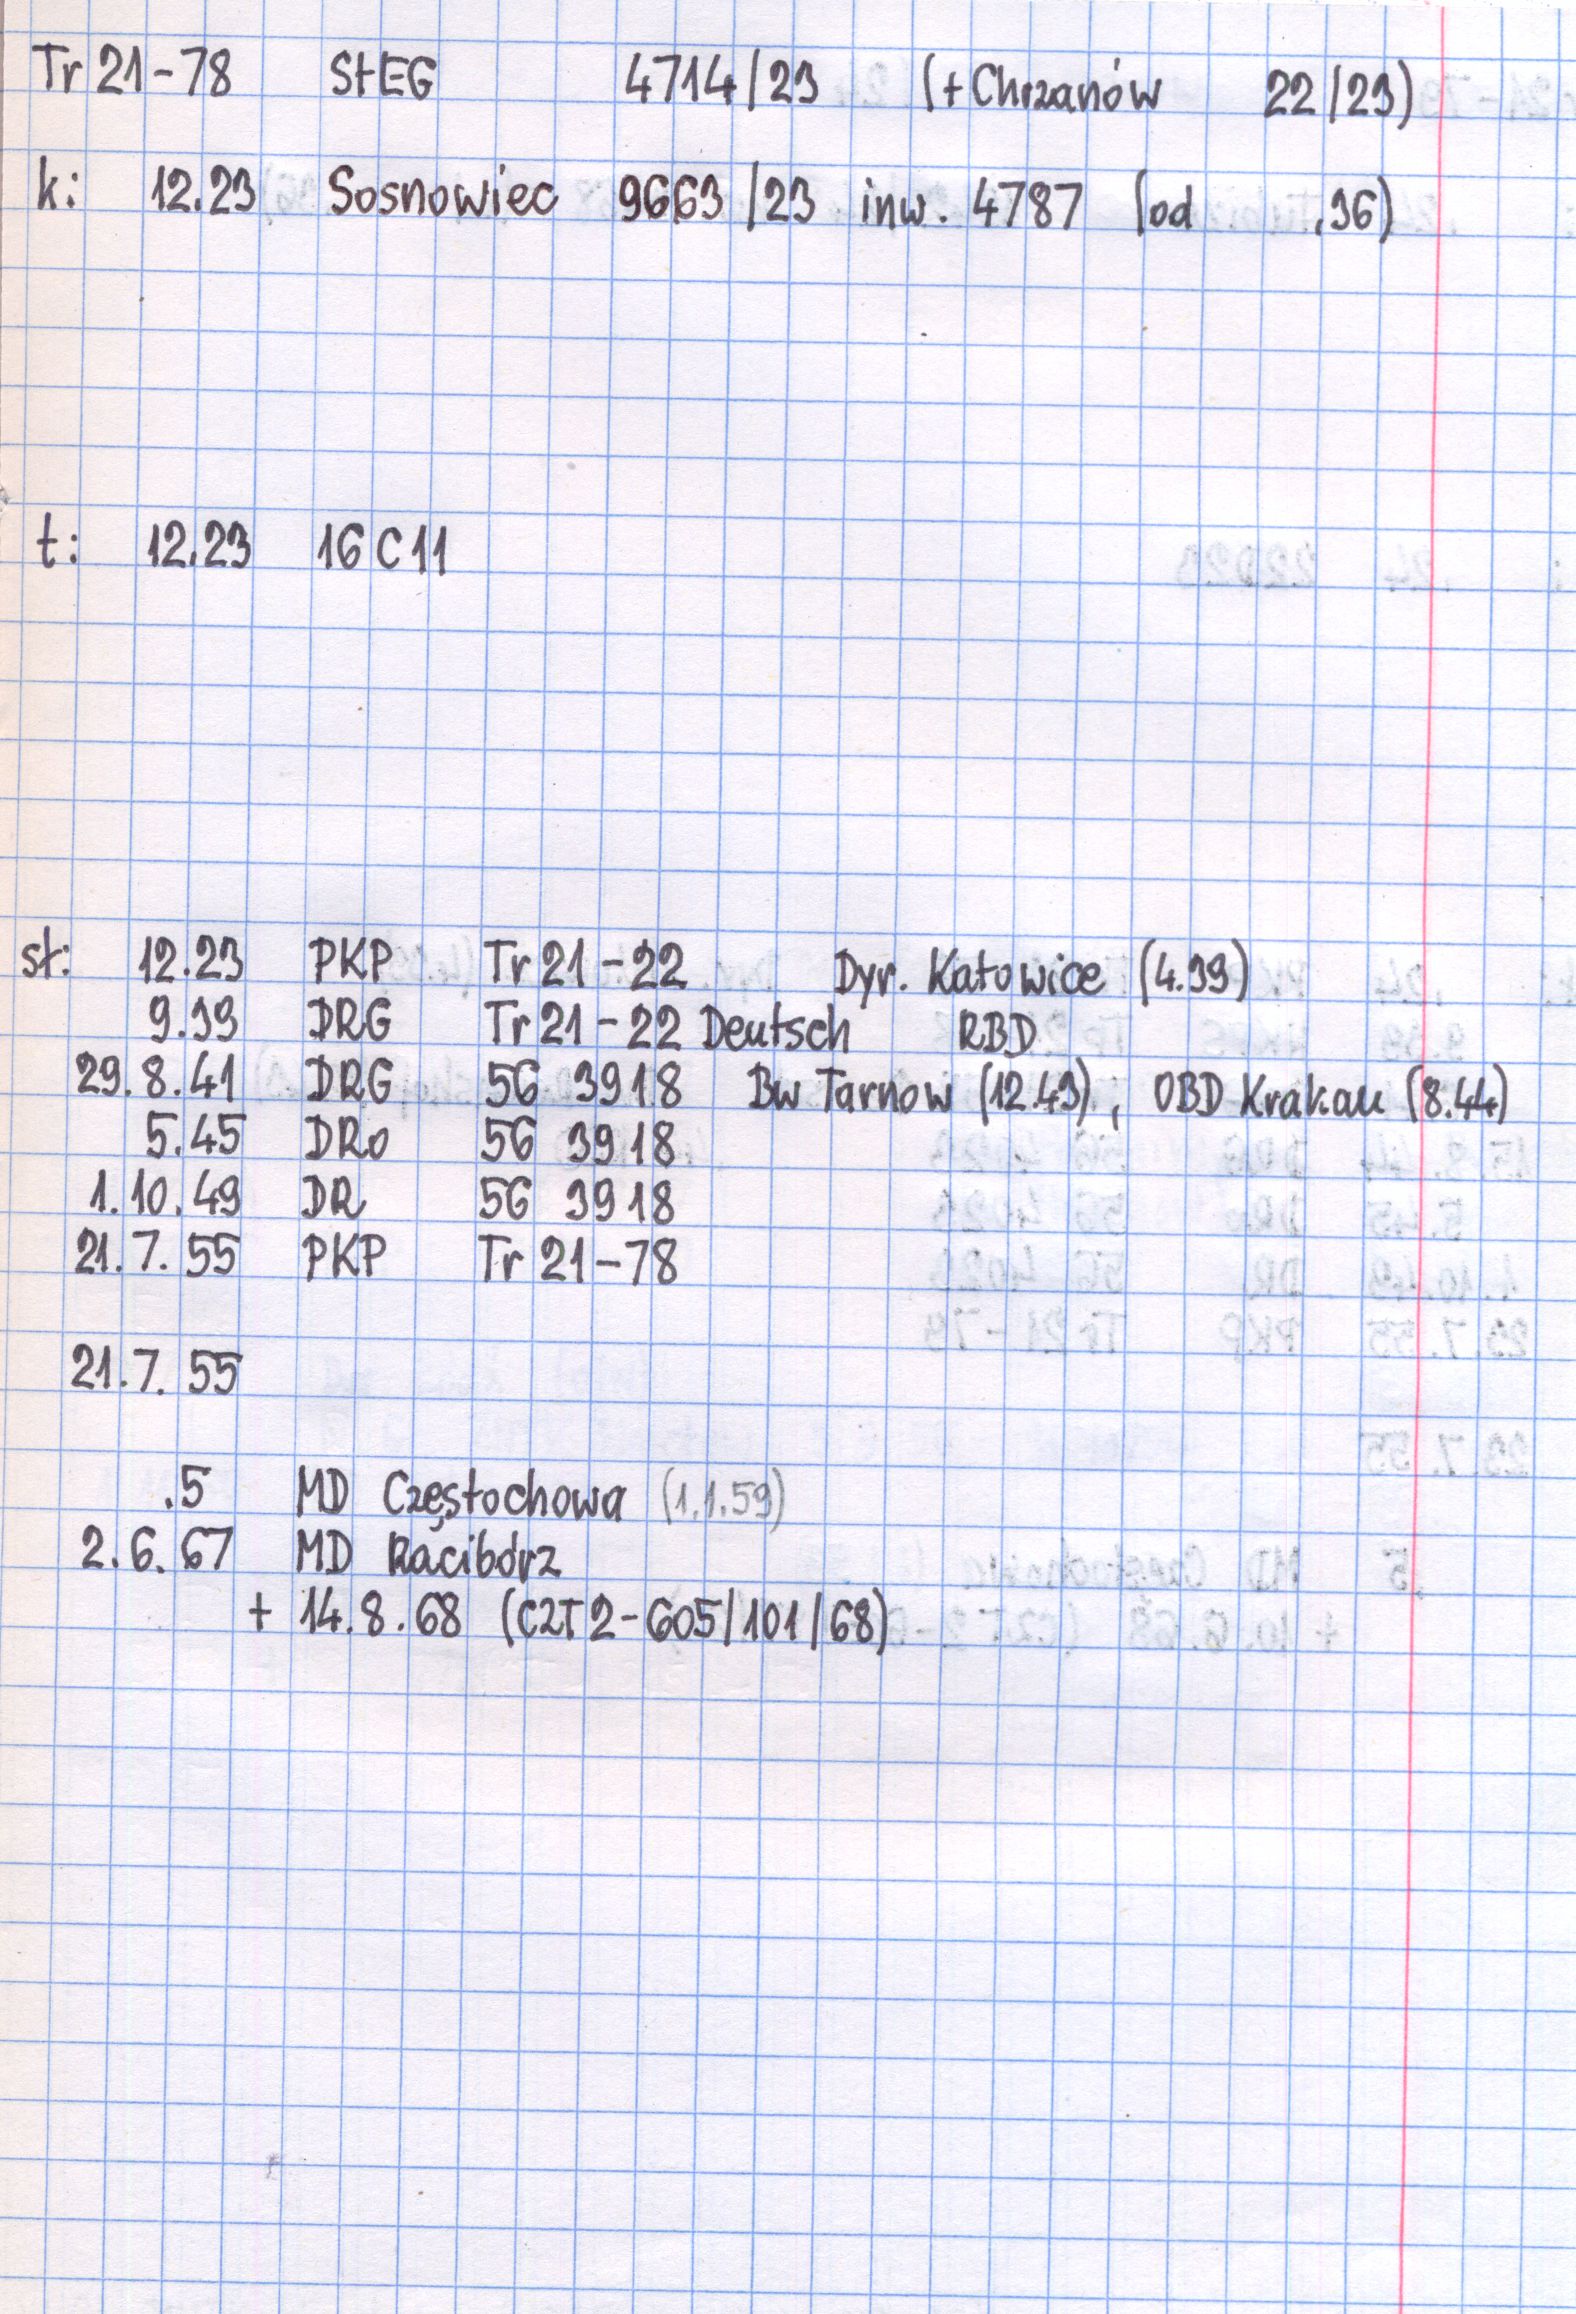 Tr 21-78 StEG 4714/23 (+Chrzanów 22/23)
k: 12.23 Sosnowiec 9663/23 inw. 4787 (od .36)
t: 12.23 16C11
st: 12.23 PKP Tr 21-22 Dyr. Katowice (4.39)
9.39 DRG Tr 21-22 Deutsch RBD
29.8.41 DRG 56 3918 Bw Tarnow (12.43), OBD Krakau (8.44)
5.45 DRo 56 3918
1.10.49 DR 56 3918
21.7.55 PKP Tr 21-78
21.7.55
.5 MD Częstochowa (1.1.59)
2.6.67 MD Racibórz
+ 14.8.68 (CZT2-605/101/68)